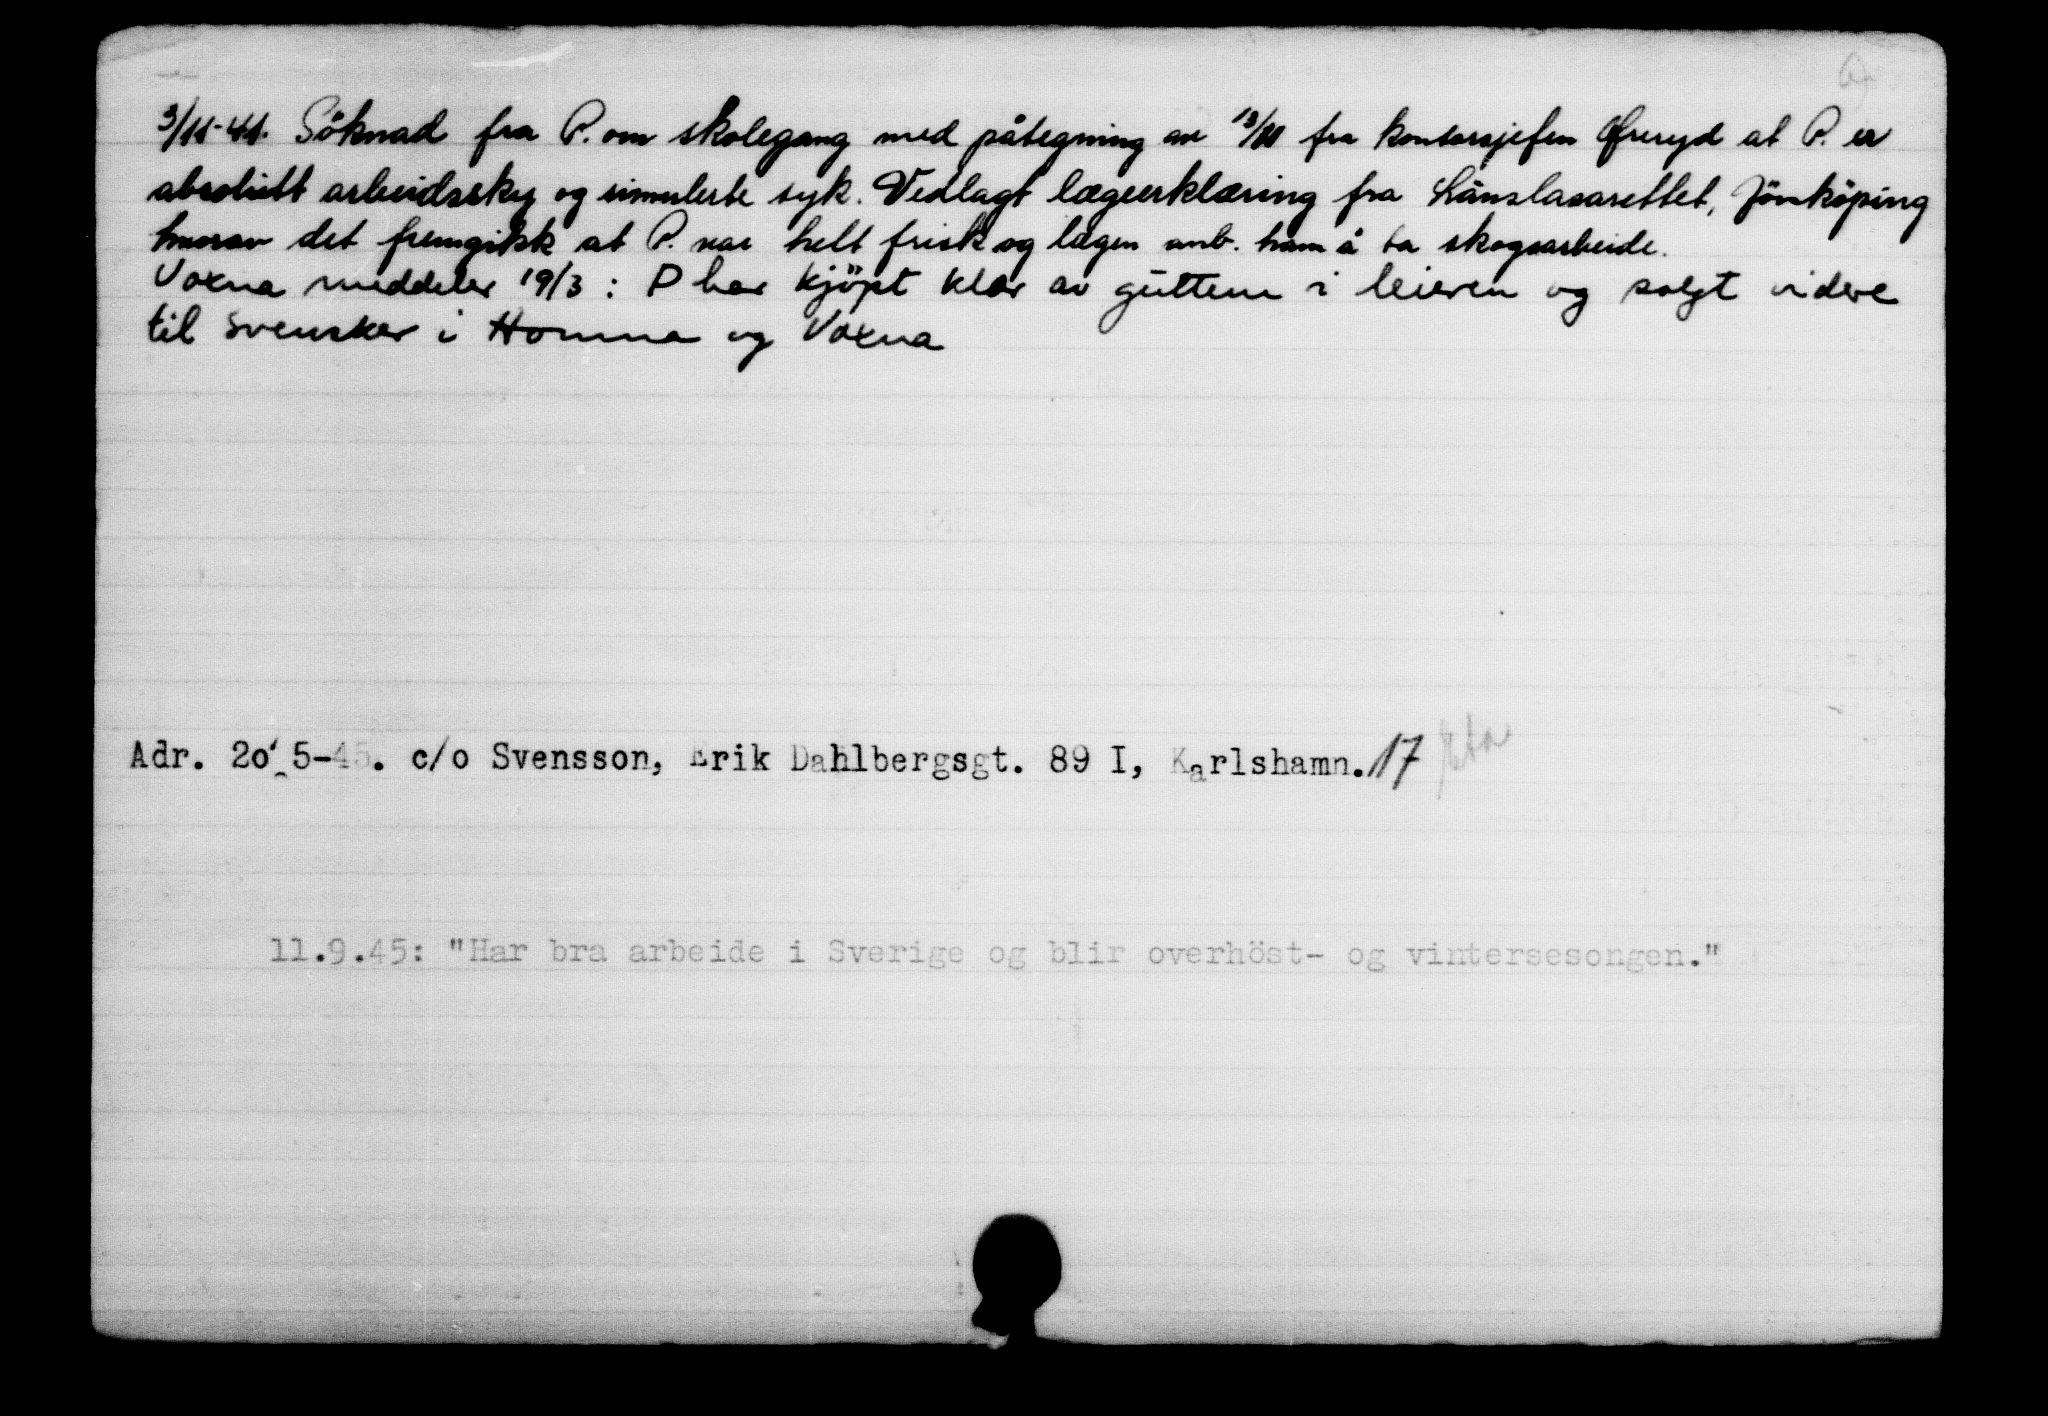 3/11-41. Söknad fra P. om skolegang med påtegning av 13/11 fra kontorsjefen Öreryd at P. er
absolutt arbeidssky og simulerte syk. Vedlagt lægeerklæring fra Länslasarettet, Jönköping
hvorav det fremgikk at P. var helt frisk og lægen anb. ham å ta skogsarbeide.
Voxna meddeler 19/3: P har kjöpt klær av guttene i leieren og solgt videre
til svensker i Homna og Voxna
Adr. 20.5-45. c/o Svensson, Erik Dahlbergsgt. 89 I, Karlshamn. 17
11.9.45: "Har bra arbeide i Sverige og blir overhöst- og vintersesongen."